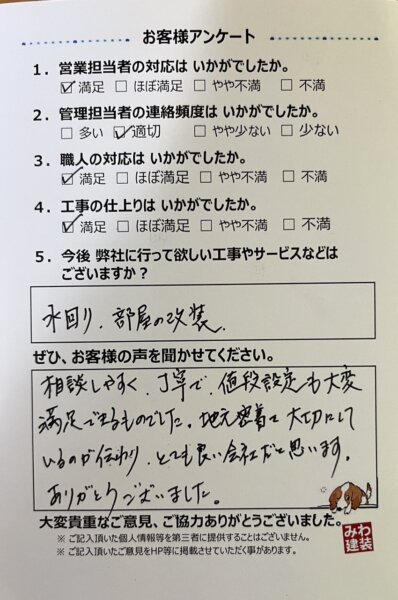 お客様アンケート
1．営業担当者の対応は いかがでしたか。
☑ 満足 □ ほぼ満足 □ やや不満 □ 不満
2．管理担当者の連絡頻度は いかがでしたか。
□ 多い ☑ 適切 □ やや少ない □ 少ない
3．職人の対応は いかがでしたか。
☑ 満足 □ ほぼ満足 □ やや不満 □ 不満
4．工事の仕上りは いかがでしたか。
☑ 満足 □ ほぼ満足 □ やや不満 □ 不満
5．今後 弊社に行って欲しい工事やサービスなどは
ございますか？
水回り、部屋の改装、
ぜひ、お客様の声を聞かせてください。
相談しやすく、丁寧で、値段設定も大変
満足できるものでした。地元密着を大切にして
いるのが伝わり、とても良い会社だと思います。
ありがとうございました。
大変貴重なご意見、ご協力ありがとうございました。
※ ご記入頂いた個人情報等を第三者に提供することはございません。
※ ご記入頂いたご意見をHP等に掲載させていただく事があります。
みわ
建装